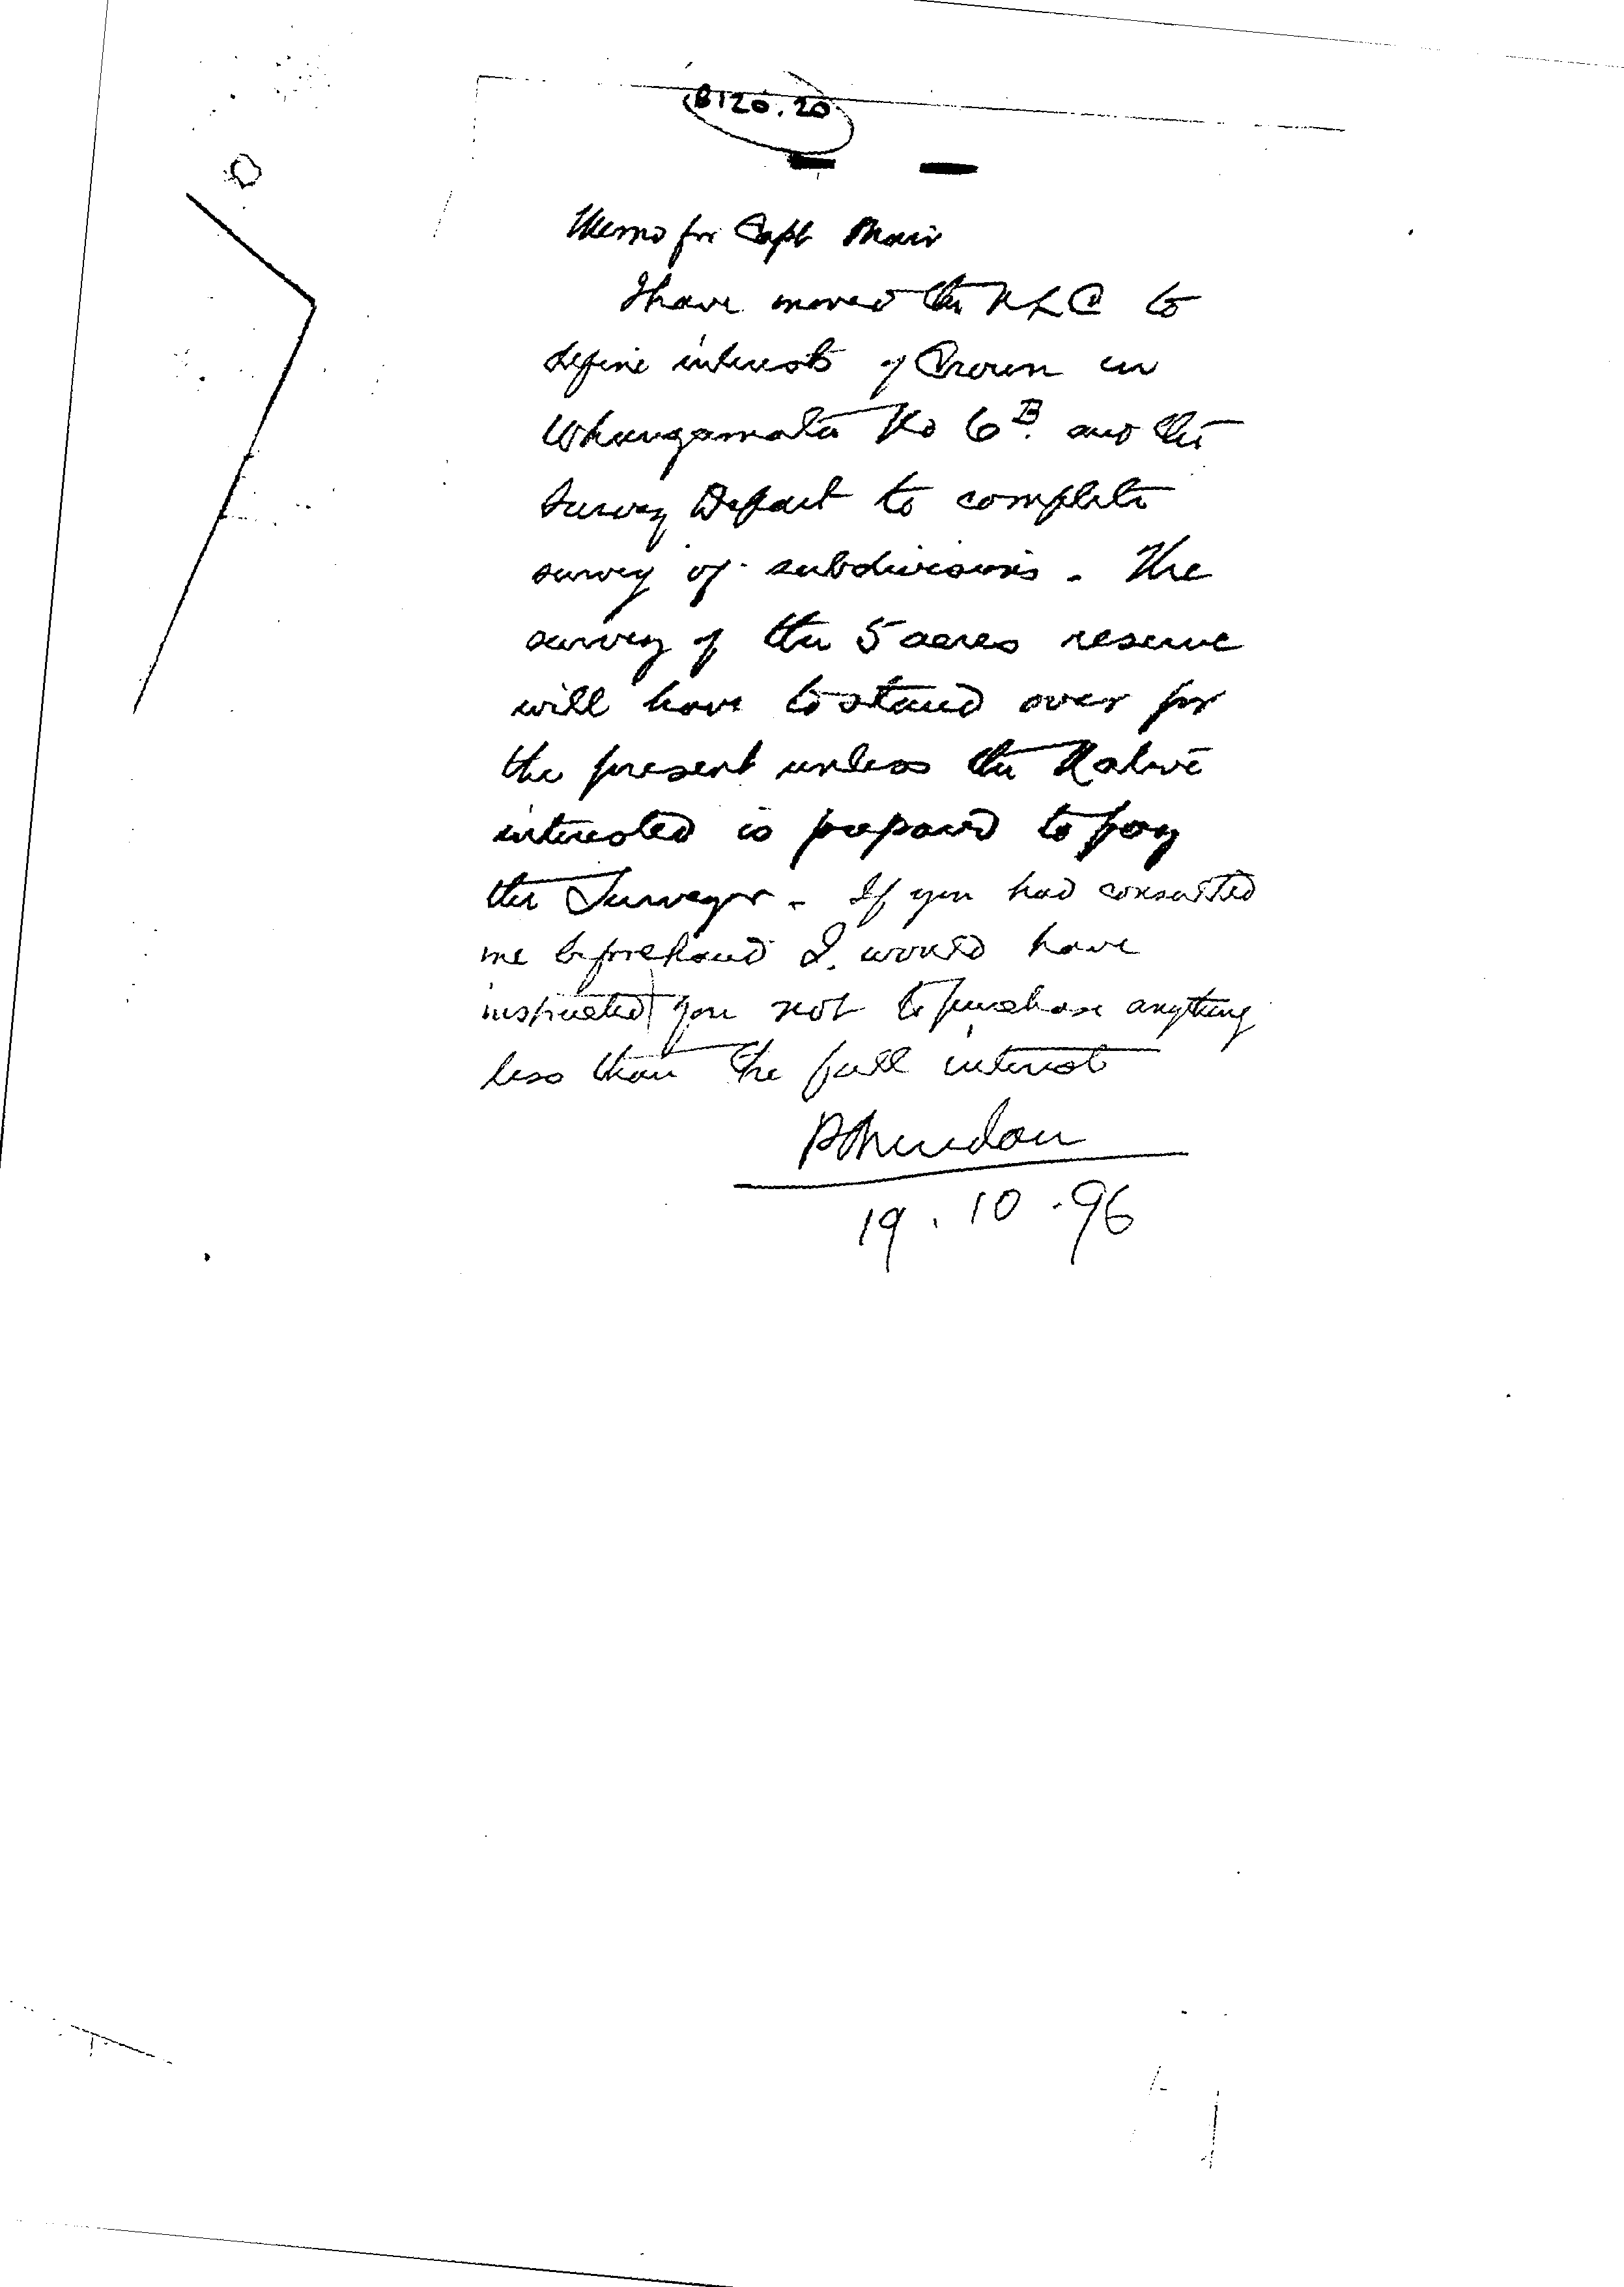 B120.20
Memo for Capt Mair
I have moved the NLC to
define interests of Crown in
Whangamata No 6B. and the
Survey Depart to complete
survey of subdivisions. The
survey of the 5 acres reserve
will have to stand over for
the present unless the Native
interested is prepared to pay
the Surveyor. If you had consulted
me beforehand I would have
instructed you not to purchase anything
less than the full interest
P Sheridan
19.10.96